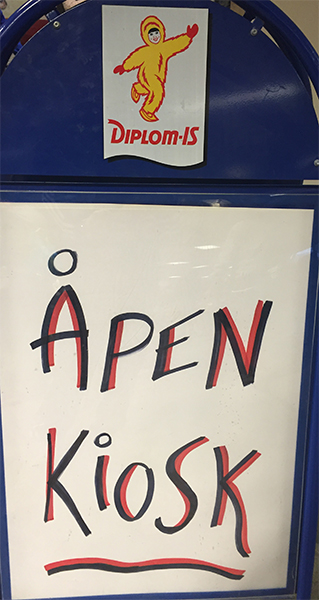 DIPLOM-IS
ÅPEN
KiOSK